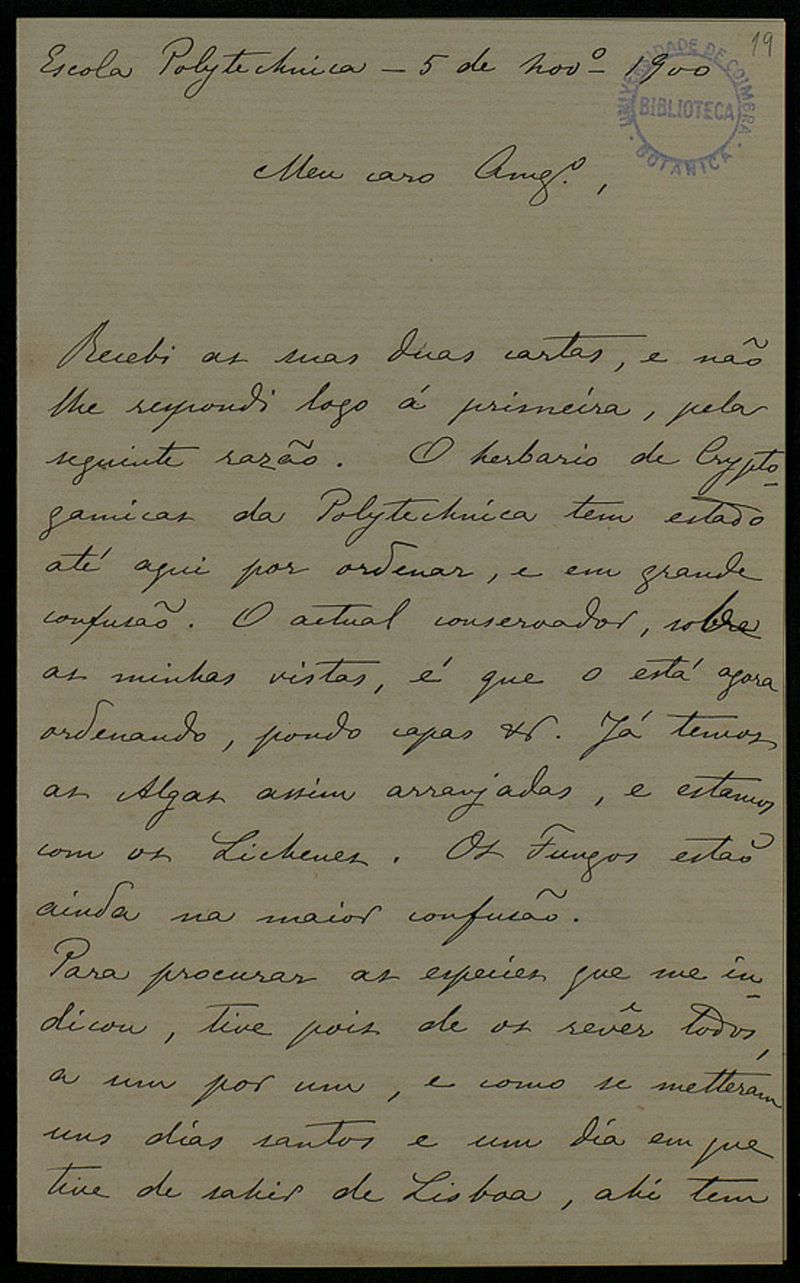 19
Escola Polytechnica — 5 de novº– 1900
UNIVERSIDADE DE COIMBRA
BIBLIOTECA
BOTANICA
Meu caro Amgº.,
Recebi as suas duas cartas, e não
lhe respondi logo á primeira, pela
seguinte razão. O herbario de Crypto-
gamicas da Polytechnica tem estado
até aqui por ordenar, e em grande
confusão. O actual conservador, sobre
as minhas vistas, é que o está agora
ordenando, pondo capas &. Já temos
as Algas assim arranjadas, e estamos
com os Lichenes. Os Fungos estão
ainda na maior confusão.
Para procurar as especies que me in-
dicou, tive pois de os revêr todos,
a um por um, e como se metteram
uns dias santos e um dia em que
tive de sahir de Lisboa, ahi tem